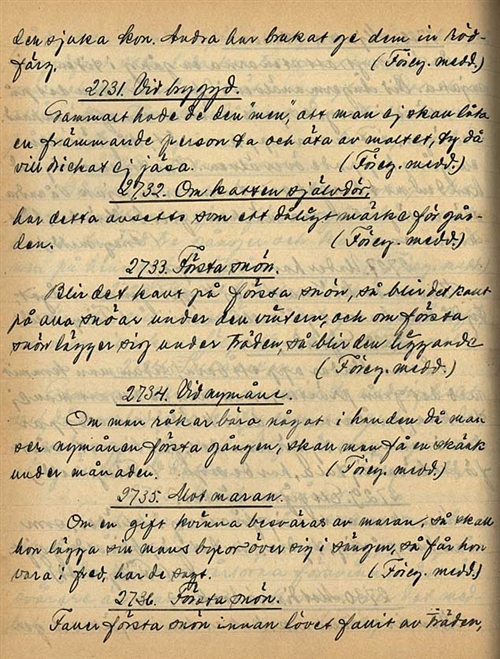 den sjuka kon. Andra har brukat ge dem in röd-
färg. (Föreg. medd.)
2731. Vid byggd.
Gammalt hade de den "men", att man ej skall låta
en främmande person ta och äta av maltet, ty då
vill drickat ej jäsa. (Föreg. medd.)
2732. Om katten självdör,
har detta ansetts som ett dåligt märke för går-
den. (Föreg. medd.)
2733. Första snön.
Blir det kallt på första snön, så blir det kallt
på alla snöar under den vintern, och om första
snön lägger sig under träden, så blir den liggande
(Föreg. medd.)
2734. Vid nymåne.
Om man råkar bära något i handen då man
ser nymånen första gången, skall man få en skänk
under månaden. (Föreg. medd.)
2735. Mot maran.
Om en gift kvinna besväras av maran, så skall
hon lägga sin mans byxor över sig i sängen, så får hon
vara i fred, har de sagt. (Föreg. medd.)
2736. Första snön.
Faller första snön innan lövet fallit av träden,